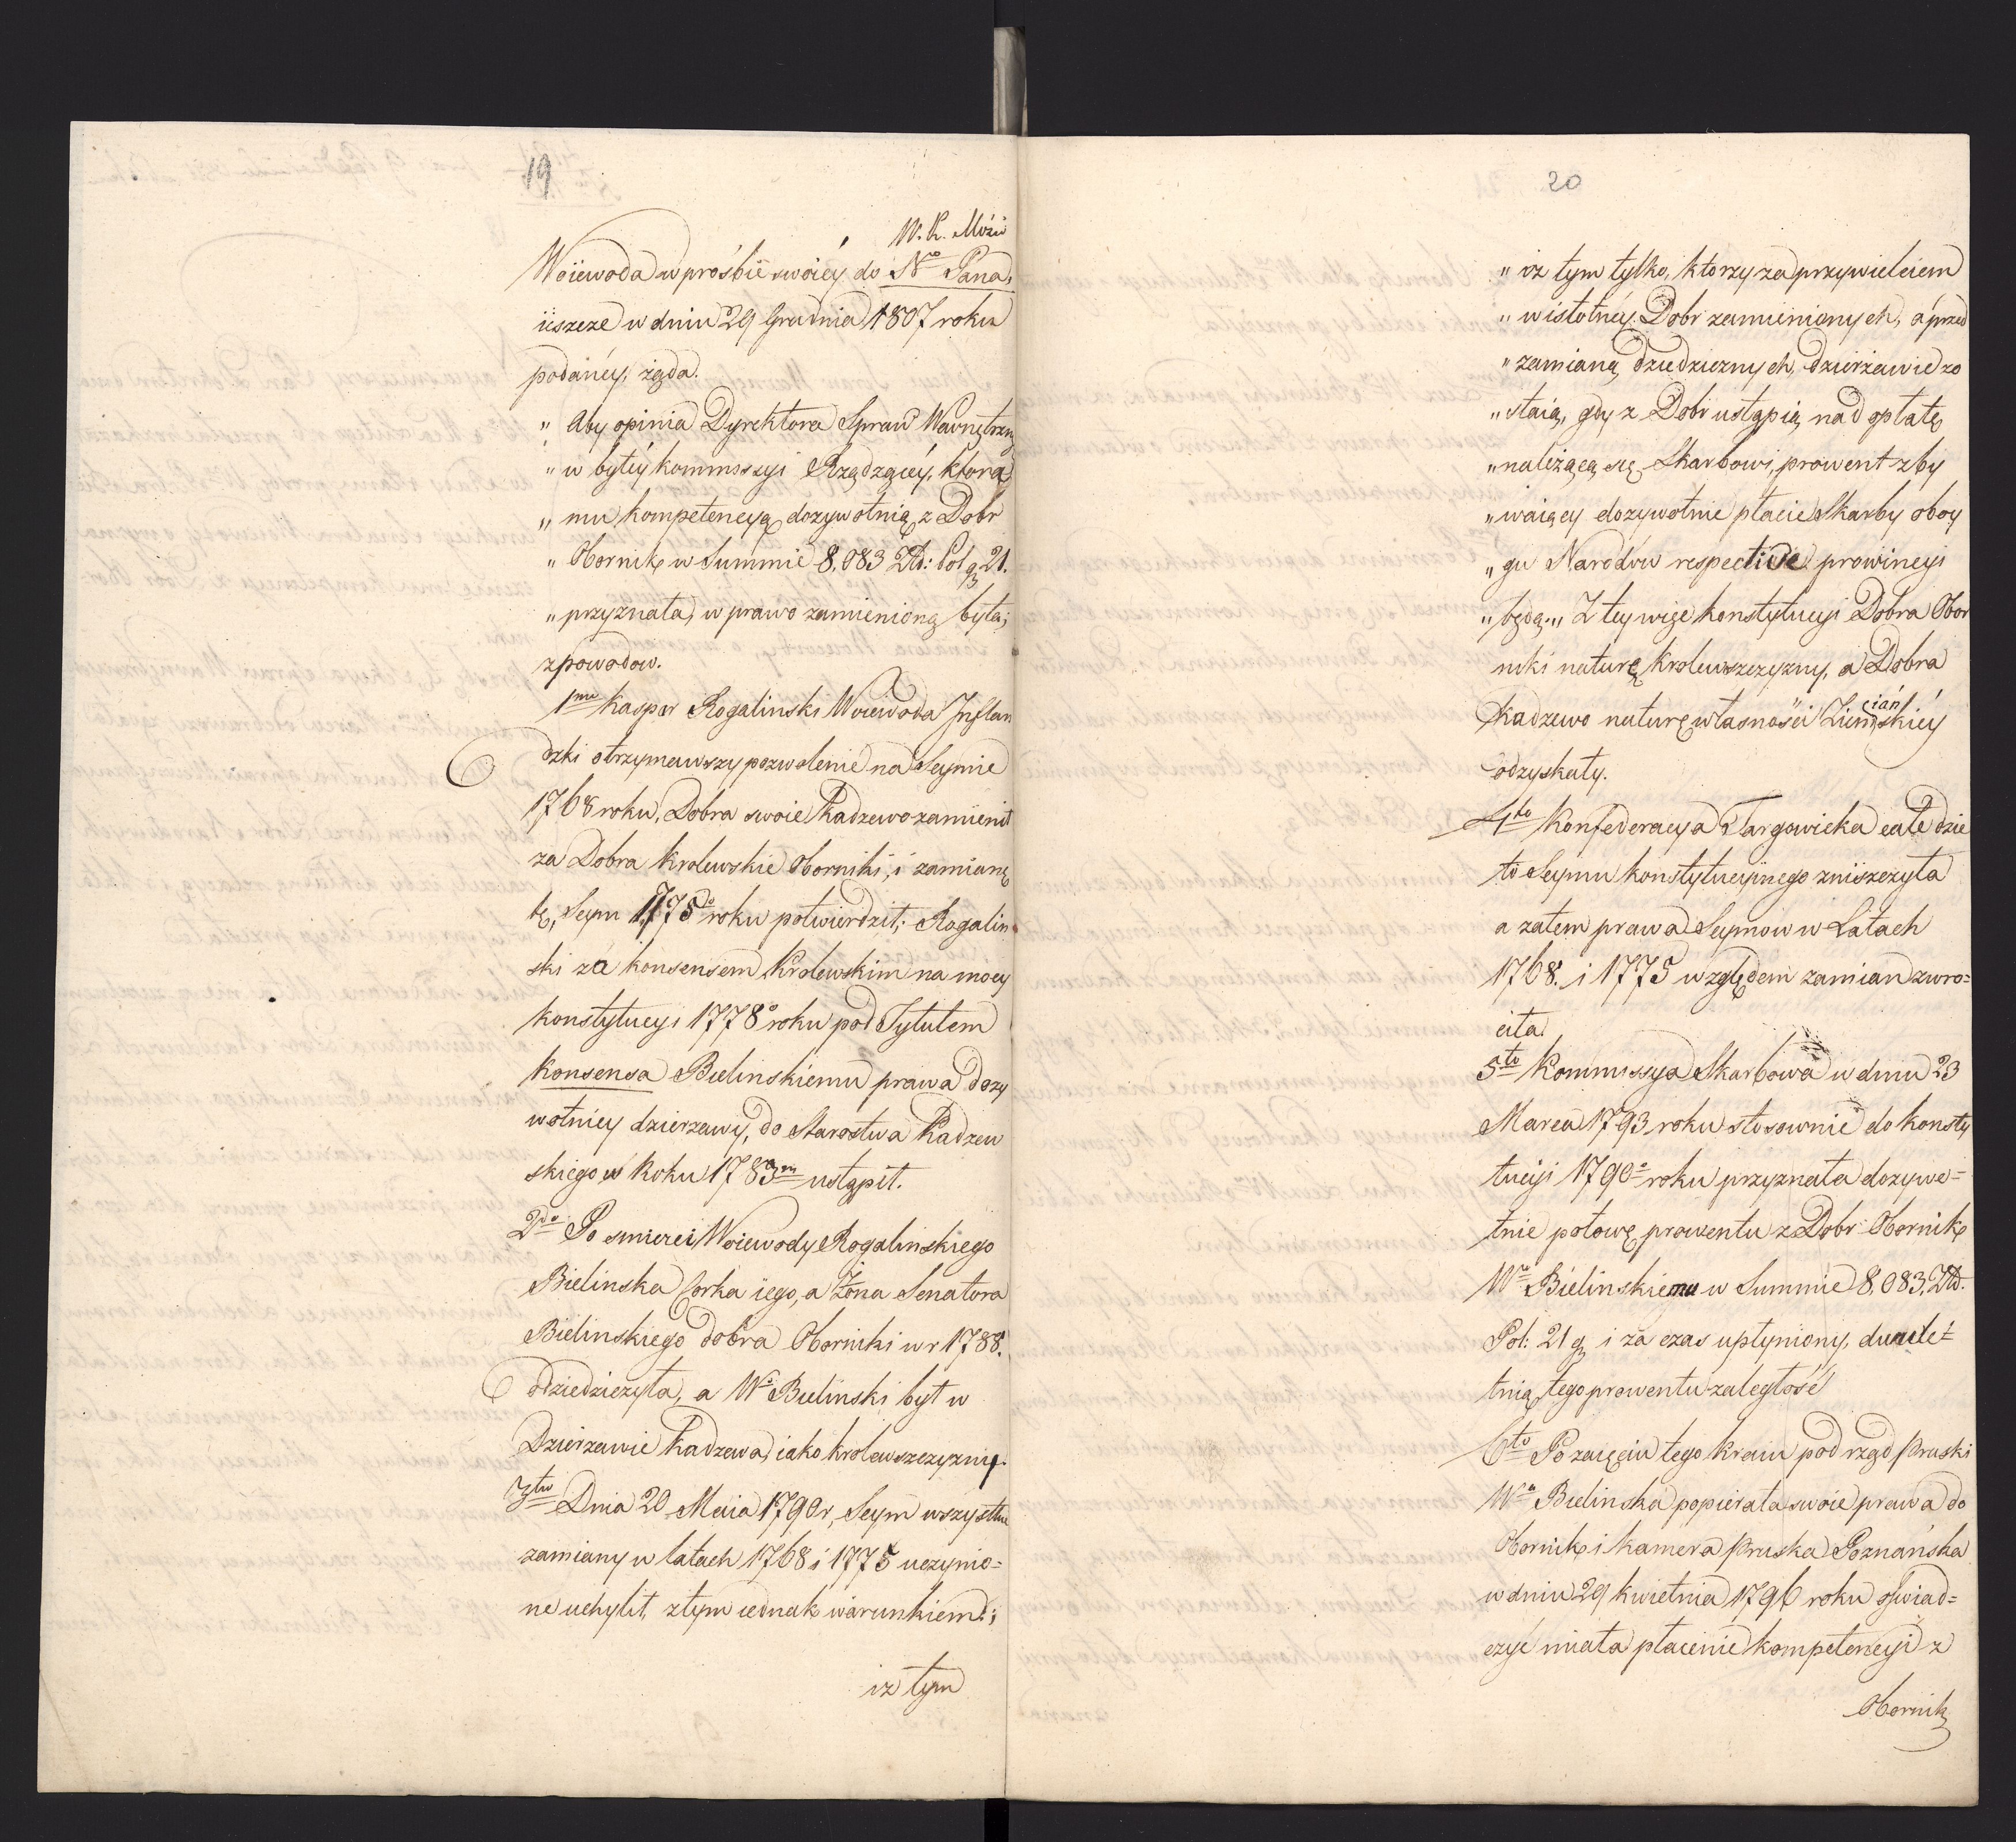 19
W. K. Mości
Woiewoda w prośbie swóiey do N<sup>o</sup> Pana,
ieszcze w dniu 29 Grudnia 1807 roku
podaney, żąda.
„ Aby opinia Dyrektora Spraw Wewnętrzn
„ w byłey kommissyi Rządzącey, która
„ mu kompetencyą dozywotnią z Dobr
„ Obornik w Summie 8,083 Zło: Pol gr 21.
„ przyznała, w prawo zamienioną była;
z powodow.
1<sup>mo</sup> Kasper Rogalinski Woiewoda Inflan
dzki otrzymawszy pozwolenie na Seymie
1768 roku, Dobra swoie Kadzewo zamienił
za Dobra Krolewskie Oborniki, i zamianę
tę, Seym 1775<sup>o</sup> roku potwierdził: Rogalin
ski za konsensem Krolewskim na mocy
konstytucyi 1778<sup>o</sup> roku pod Tytułem
Konsensa Bielinskiemu prawa dozy
wotniey dzierzawy, do Starostwa Kadzew
skiego w Roku 1783<sup>m</sup> ustąpił.
2<sup>do</sup> Po smierci Woiewody Rogalinskiego
Bielinska Corka iego, a Żona Senatora
Bielinskiego dobra Oborniki w r 1788.
odziedziczyła, a W<sup>o</sup> Bielinski był w
Dzierzawie Kadzewa iako krolewszczyzny.
3<sup>tio</sup> Dnia 20 Maia 1790 r, Seym wszystkie
zamiany w latach 1768 i 1775 uczynio=
ne uchylił, z tym iednak warunkiem:;
iz tym
20
„ iz tym tylko, ktorzy za przywileiem
„ w istotney Dobr zamienionych, a przed
„ zamianą dziedzicznych, dzierżawie zo
„ staią, gdy z Dobr ustąpią, nad opłatę
„ należącą się Skarbowi, prowent zby
„ waiący dozywotnie płacić Skarby oboy
„ gu Narodów respective prowincyi
„ będą.„ Z tey więc konstytucyi Dobra Obor
niki naturę krolewszczyzny, a Dobra
Kadzewo naturę własności Ziemiańskiey
odzyskały.
4<sup>to</sup> Konfederacya Targowicka całe dzie
ło Seymu konstytucyinego zniszczyła
a zatem prawa Seymow w Latach
1768. i 1775 względem zamian zwro=
ciła
5<sup>to</sup> Kommissya Skarbowa w dniu 23
Marca 1793 roku stosownie do konsty
tucyi 1790<sup>o</sup> roku przyznała dozywo=
tnie połowę prowentu z Dobr Obornik
W<sup>o</sup> Bielinskiemu w Summie 8,083. Zło.
Pol: 21 gr i za czas upłyniony, dwule=
tnią tego prowentu zaległość
6<sup>to</sup> Po zaięciu tego kraiu pod rząd Pruski
W<sup>a</sup> Bielinska popierała swoie prawa do
Obornik i Kamera Pruska Poznańska
w dniu 29 kwietnia 1796 roku oświad=
czyć miała płacenie kompetencyi z
Obornik